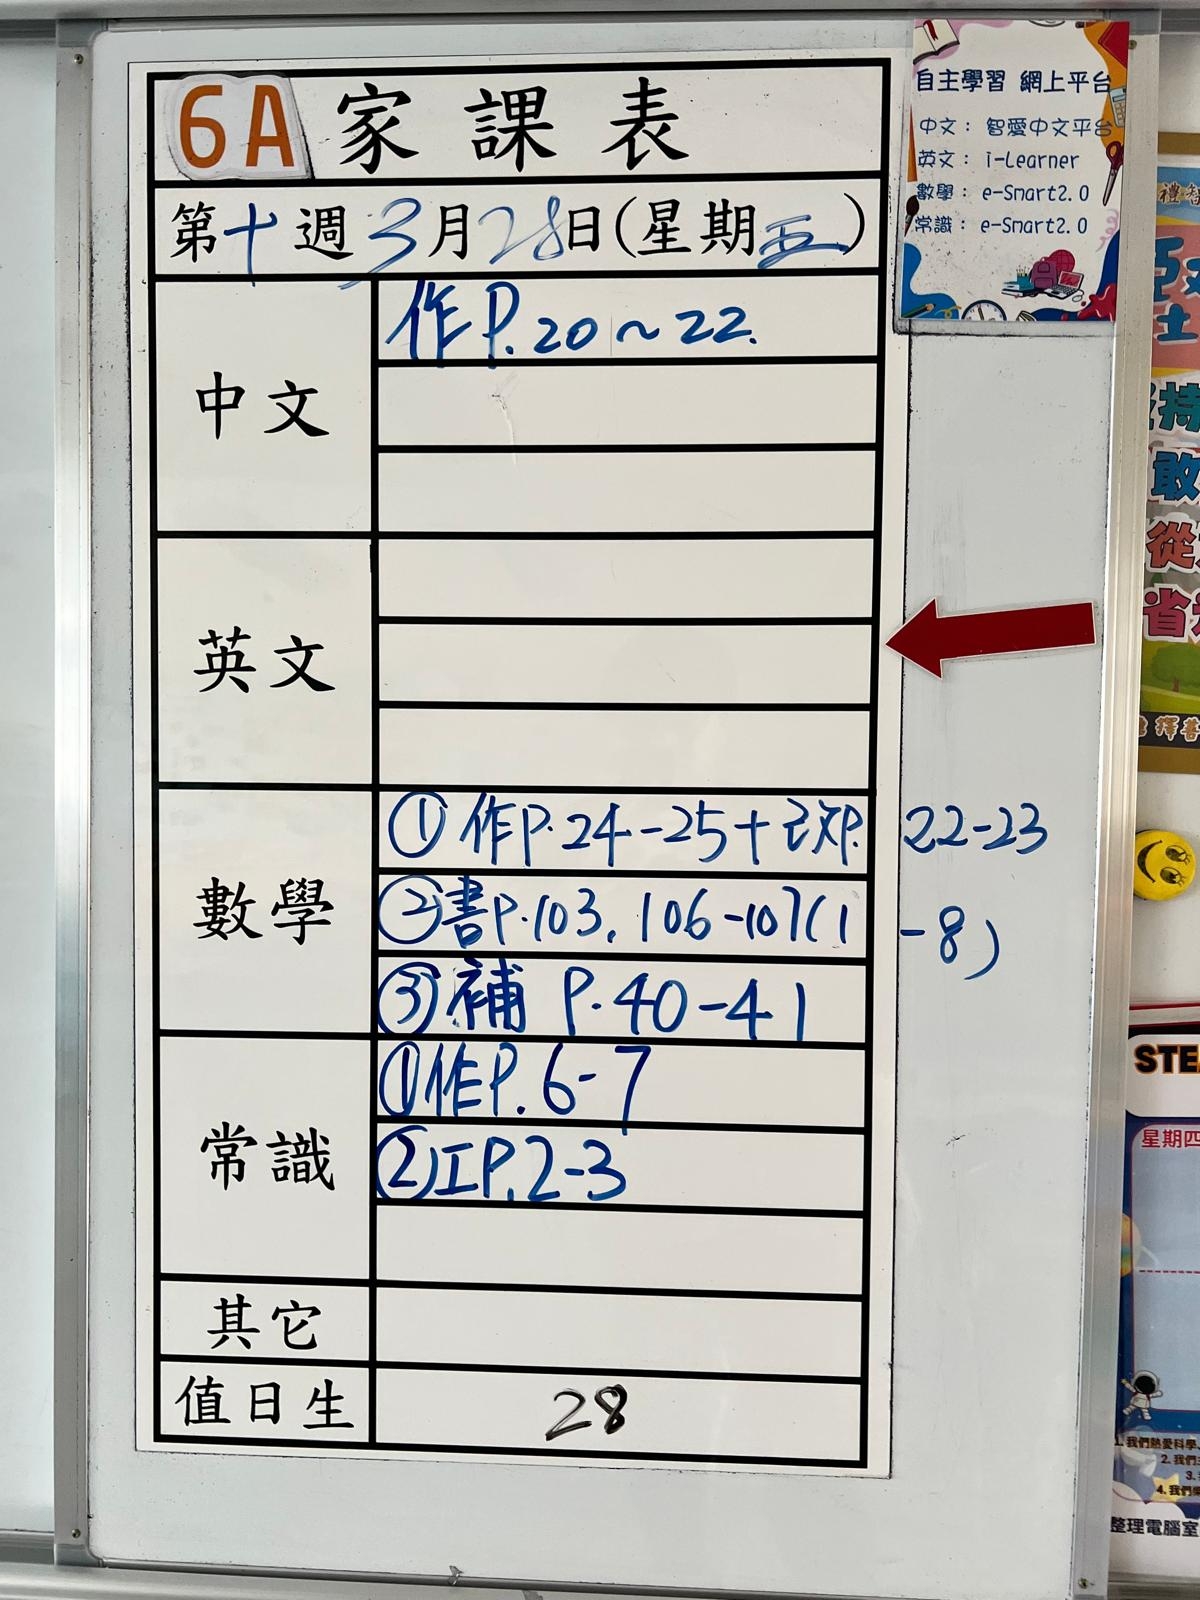 6A 家課表
第十週 3月28日(星期五)
中文
作P.20~22.
英文
數學
①作P.24-25+改P.22-23
②書P.103,106-107(1-8)
③補 P.40-41
常識
①作P.6-7
②工P.2-3
其它
值日生
28
自主學習 網上平台
中文： 智愛中文平台
英文： i-Learner
數學： e-Smart2.0
常識： e-Smart2.0
禮
持
敢
從
省
擇善
STE
星期四
1. 我們熱愛科學
2. 我們
3.
4. 我們
整理電腦室